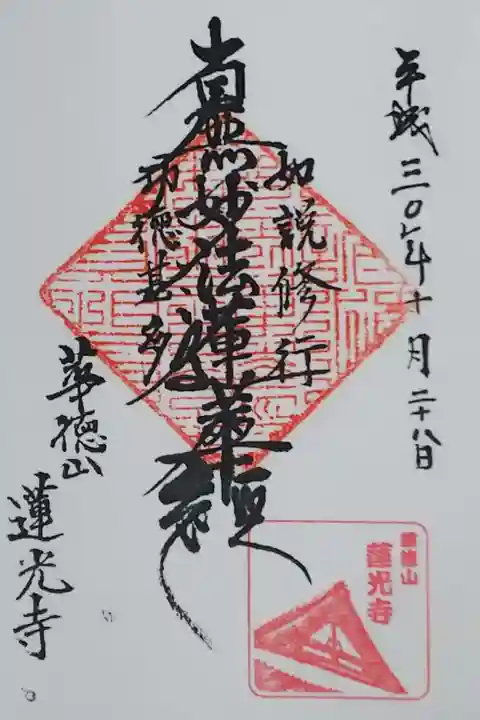 平成三〇年十月二十八日
如説修行
南無妙法蓮華経
功徳甚多
華徳山
蓮光寺
華徳山
蓮光寺